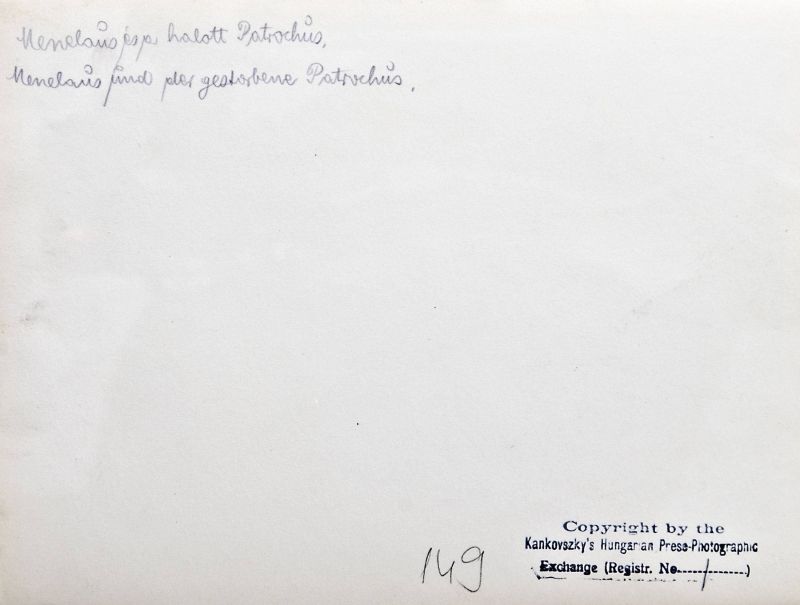 Menelaus és a halott Patrochus,
Menelaus und der gestorbene Patrochus,
149
Copyright by the
Kankovszky's Hungarian Press-Photographic
Exchange (Registr. No......./.........)